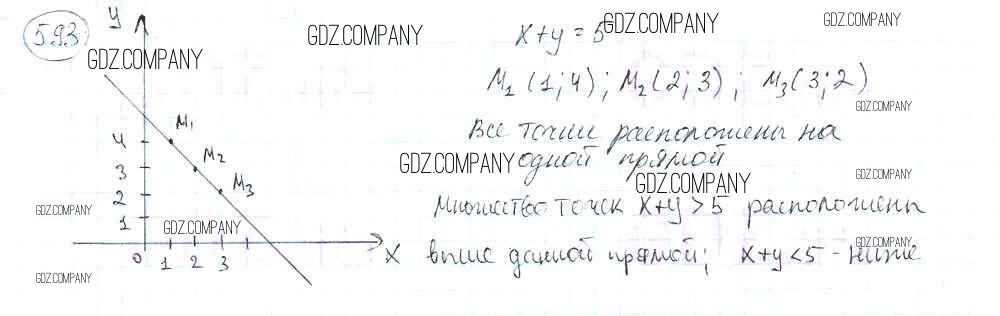 593
y
GDZ.COMPANY
GDZ.COMPANY
GDZ.COMPANY
GDZ.COMPANY
x+y=5
M1 (1;4); M2 (2;3); M3 (3;2)
GDZ.COMPANY
Все точки расположены на
одной прямой
GDZ.COMPANY
GDZ.COMPANY
Множество точек x+y>5 расположены
выше данной прямой; x+y<5 - ниже
GDZ.COMPANY
M1
4
M2
3
M3
2
GDZ.COMPANY
1
GDZ.COMPANY
x
0 1 2 3
GDZ.COMPANY